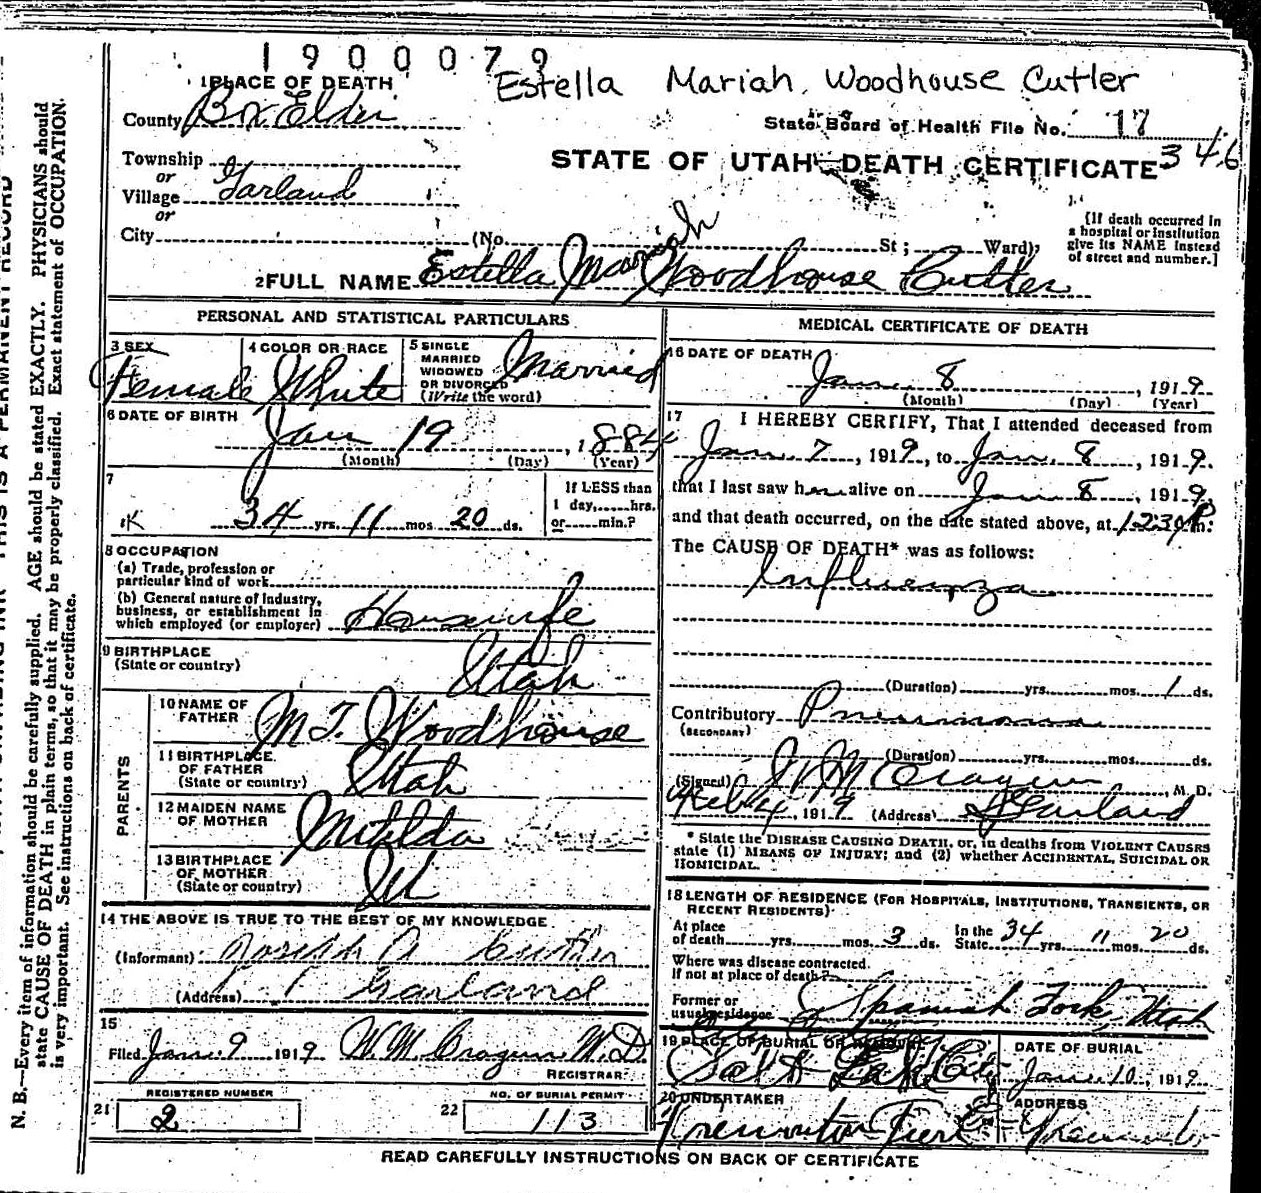 1900079
Estella Mariah Woodhouse Cutler
1 PLACE OF DEATH
County Box Elder
State Board of Health File No. 17
346
Township
or
Village Garland
or
City (No. St; Ward);
STATE OF UTAH—DEATH CERTIFICATE
[If death occurred in
a hospital or institution
give its NAME instead
of street and number.]
2 FULL NAME Estella Mariah Woodhouse Cutler
PERSONAL AND STATISTICAL PARTICULARS
3 SEX
Female
4 COLOR OR RACE
White
5 SINGLE
MARRIED
WIDOWED
OR DIVORCED
(Write the word)
Married
6 DATE OF BIRTH
Jan 19, 1884
(Month) (Day) (Year)
7
34 yrs. 11 mos. 20 ds.
If LESS than
1 day,......hrs.
or......min.?
8 OCCUPATION
(a) Trade, profession or
particular kind of work
(b) General nature of industry,
business, or establishment in
which employed (or employer) Housewife
9 BIRTHPLACE
(State or country)
Utah
PARENTS
10 NAME OF
FATHER
M T. Woodhouse
11 BIRTHPLACE
OF FATHER
(State or country)
Utah
12 MAIDEN NAME
OF MOTHER
Matilda
13 BIRTHPLACE
OF MOTHER
(State or country)
14 THE ABOVE IS TRUE TO THE BEST OF MY KNOWLEDGE
(Informant) Cutler
(Address) Garland
15
Filed Jan. 9 1919 W.M. Cragun M.D.
REGISTRAR
REGISTERED NUMBER
21 2
NO. OF BURIAL PERMIT
22 113
MEDICAL CERTIFICATE OF DEATH
16 DATE OF DEATH
Jan. 8, 1919
(Month) (Day) (Year)
17
I HEREBY CERTIFY, That I attended deceased from
Jan. 7, 1919, to Jan. 8, 1919.
that I last saw her alive on Jan 8, 1919,
and that death occurred, on the date stated above, at 12:30 P m.
The CAUSE OF DEATH* was as follows:
Influenza
(Duration) yrs. mos. 1 ds.
Contributory Pneumonia
(SECONDARY)
(Duration) yrs. mos. ds.
(Signed) W M Cragun, M. D.
Feb 4, 1919 (Address) Garland
* State the DISEASE CAUSING DEATH, or, in deaths from VIOLENT CAUSES
state (1) MEANS OF INJURY; and (2) whether ACCIDENTAL, SUICIDAL OR
HOMICIDAL.
18 LENGTH OF RESIDENCE (FOR HOSPITALS, INSTITUTIONS, TRANSIENTS, OR
RECENT RESIDENTS)
At place
of death yrs. mos. 3 ds.
In the
State 34 yrs. 11 mos. 20 ds.
Where was disease contracted,
If not at place of death?
Former or
usual residence Spanish Fork, Utah
19 PLACE OF BURIAL OR REMOVAL
Salt Lake City
DATE OF BURIAL
Jan. 10, 1919
20 UNDERTAKER
Tremonton
ADDRESS
READ CAREFULLY INSTRUCTIONS ON BACK OF CERTIFICATE
N. B.—Every item of information should be carefully supplied. AGE should be stated EXACTLY. PHYSICIANS should
state CAUSE OF DEATH in plain terms, so that it may be properly classified. Exact statement of OCCUPATION
is very important. See instructions on back of certificate.
INK—THIS IS A PERMANENT RECORD